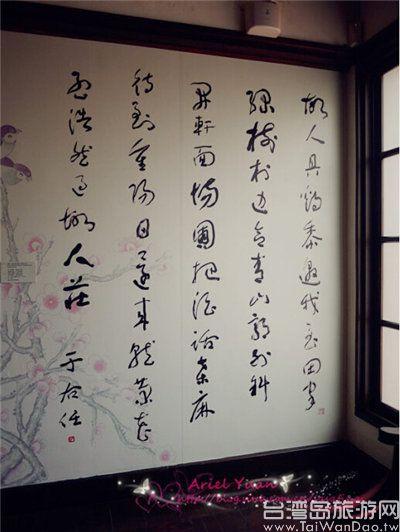 故人具鷄黍邀我至田家
綠樹村邊合青山郭外斜
開軒面場圃把酒話桑麻
待到重陽日還來就菊花
孟浩然過故人莊
于右任
Ariel Yuan
台湾岛旅游网
www.TaiWanDao.tw